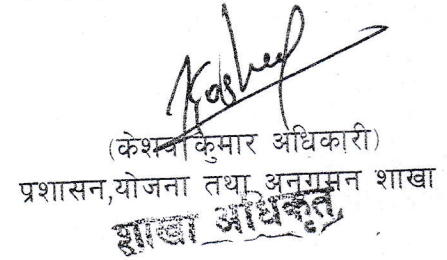 (केशव कुमार अधिकारी)
प्रशासन,योजना तथा अनुगमन शाखा
शाखा अधिकृत